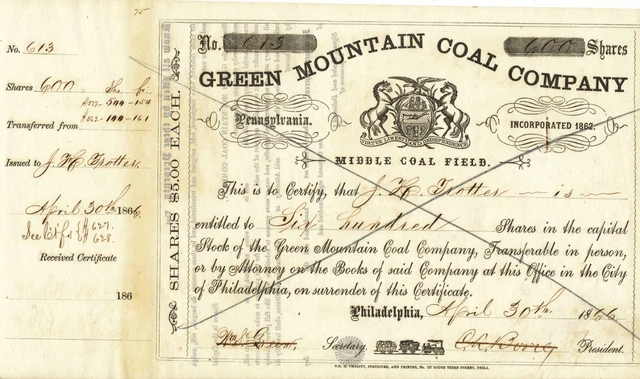 75
No. 613
Shares 600
Transferred from
Issued to J. H. Trotter
April 30th 1866
627.
628.
Received Certificate
186
SHARES $5.00 EACH.
No. 613
600 Shares
GREEN MOUNTAIN COAL COMPANY
Pennsylvania.
VIRTUE LIBERTY AND INDEPENDENCE
INCORPORATED 1862.
MIDDLE COAL FIELD.
This is to Certify, that J. H. Trotter is
entitled to Six hundred Shares in the capital
Stock of the Green Mountain Coal Company, Transferable in person,
or by Attorney on the Books of said Company at this Office in the City
of Philadelphia, on surrender of this Certificate.
Philadelphia, April 30th 1866
Secretary. President.